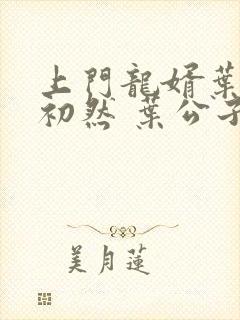 上門龍婿葉
初然 葉公子
美月蓮